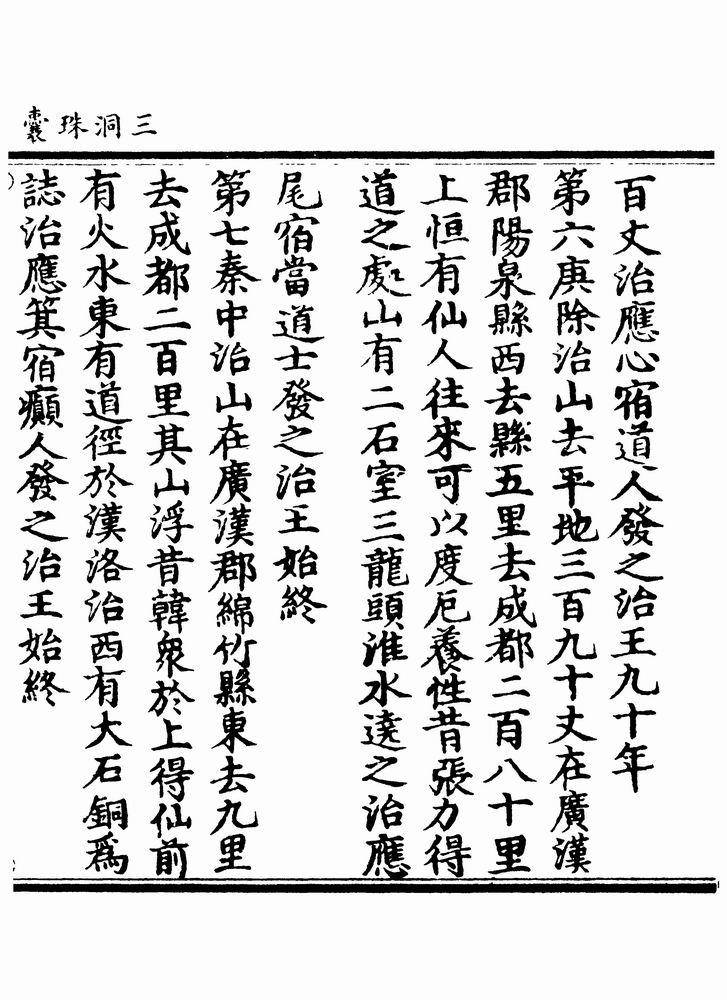 三洞珠囊
百丈治應心宿道人發之治王九十年
第六庚除治山去平地三百九十丈在廣漢
郡陽泉縣西去縣五里去成都二百八十里
上恒有仙人往來可以度厄養性昔張力得
道之處山有二石室三龍頭淮水遶之治應
尾宿當道士發之治王始終
第七秦中治山在廣漢郡綿竹縣東去九里
去成都二百里其山浮昔韓衆於上得仙前
有火水東有道徑於漢洛治西有大石銅爲
誌治應箕宿癲人發之治王始終